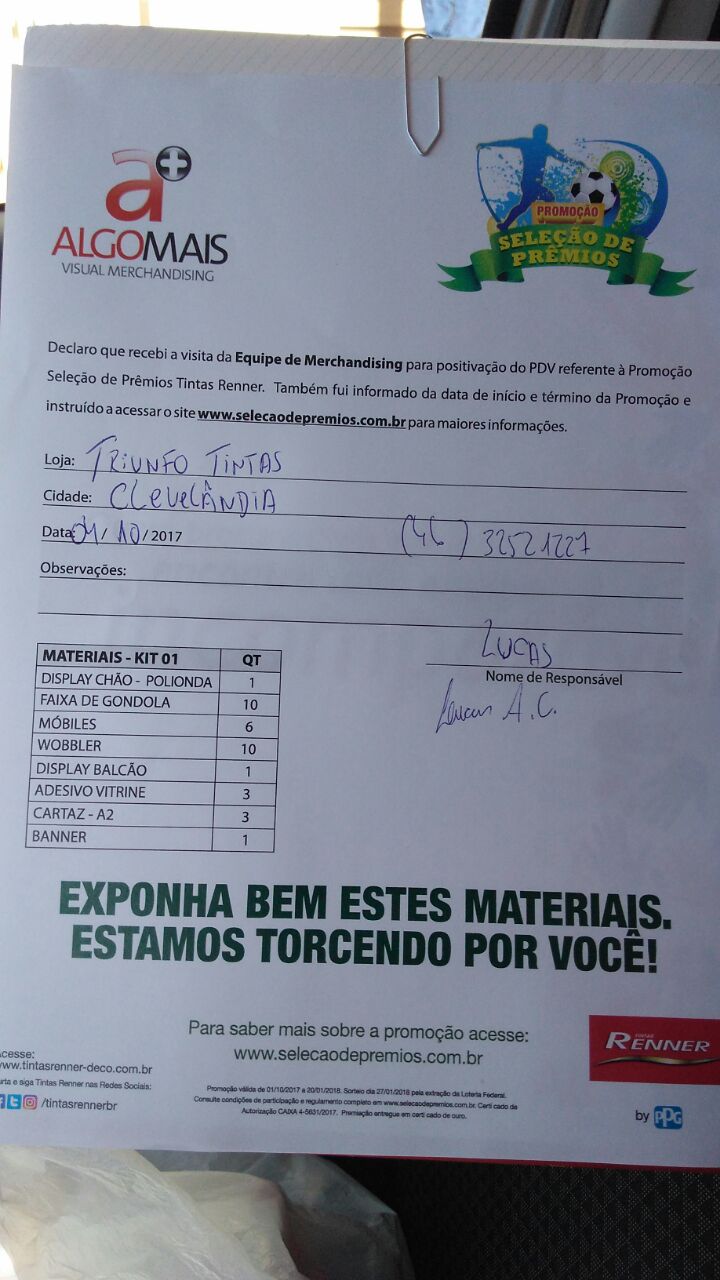 a+
ALGOMAIS
VISUAL MERCHANDISING
PROMOÇÃO
SELEÇÃO DE
PRÊMIOS
Declaro que recebi a visita da Equipe de Merchandising para positivação do PDV referente à Promoção
Seleção de Prêmios Tintas Renner. Também fui informado da data de início e término da Promoção e
instruído a acessar o site www.selecaodepremios.com.br para maiores informações.
Loja: TRIUNFO TINTAS
Cidade: CLEVELÂNDIA
Data: 04/10/2017 (46) 32521227
Observações:
LUCAS
Nome de Responsável
A.C.
MATERIAIS - KIT 01 QT
DISPLAY CHÃO - POLIONDA 1
FAIXA DE GONDOLA 10
MÓBILES 6
WOBBLER 10
DISPLAY BALCÃO 1
ADESIVO VITRINE 3
CARTAZ - A2 3
BANNER 1
EXPONHA BEM ESTES MATERIAIS.
ESTAMOS TORCENDO POR VOCÊ!
Para saber mais sobre a promoção acesse:
www.selecaodepremios.com.br
cesse:
www.tintasrenner-deco.com.br
urta e siga Tintas Renner nas Redes Sociais:
/tintasrennerbr
Promoção válida de 01/10/2017 a 20/01/2018. Sorteio dia 27/01/2018 pela extração da Loteria Federal.
Consulte condições de participação e regulamento completo em www.selecaodepremios.com.br. Certi cado de
Autorização CAIXA 4-5631/2017. Premiação entregue em certi cado de ouro.
TINTAS
RENNER
by PPG